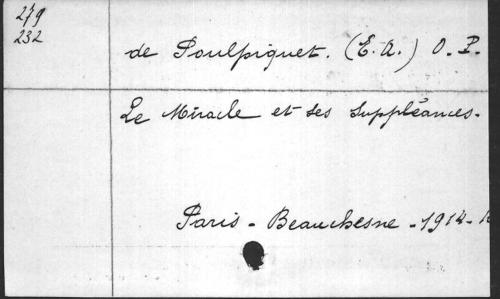 279
232
de Poulpiquet. (E. A.) O. P.
Le Miracle et ses Suppléances.
Paris - Beauchesne - 1914 -